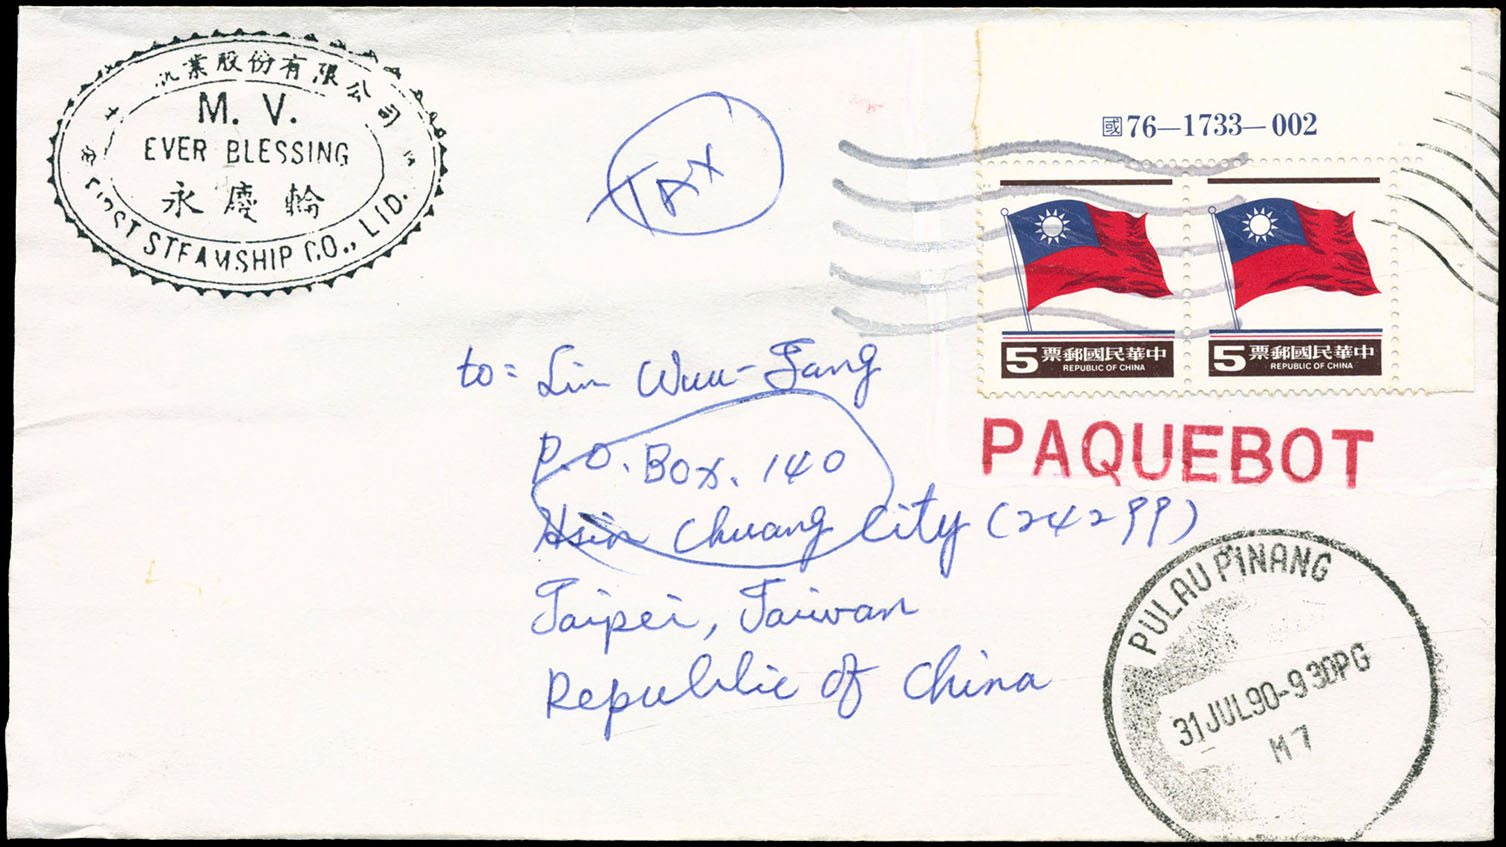 業股份有限公司
M. V.
EVER BLESSING
永慶輪
FIRST STEAMSHIP CO., LTD.
TAX
國76—1733—002
5 中華民國郵票
REPUBLIC OF CHINA
5 中華民國郵票
REPUBLIC OF CHINA
PAQUEBOT
to: Lin Wuu-Fang
P.O. Box. 140
Hsin Chuang City (24299)
Taipei, Taiwan
Republic of China
PULAU PINANG
31 JUL90-9 30PG
M 7